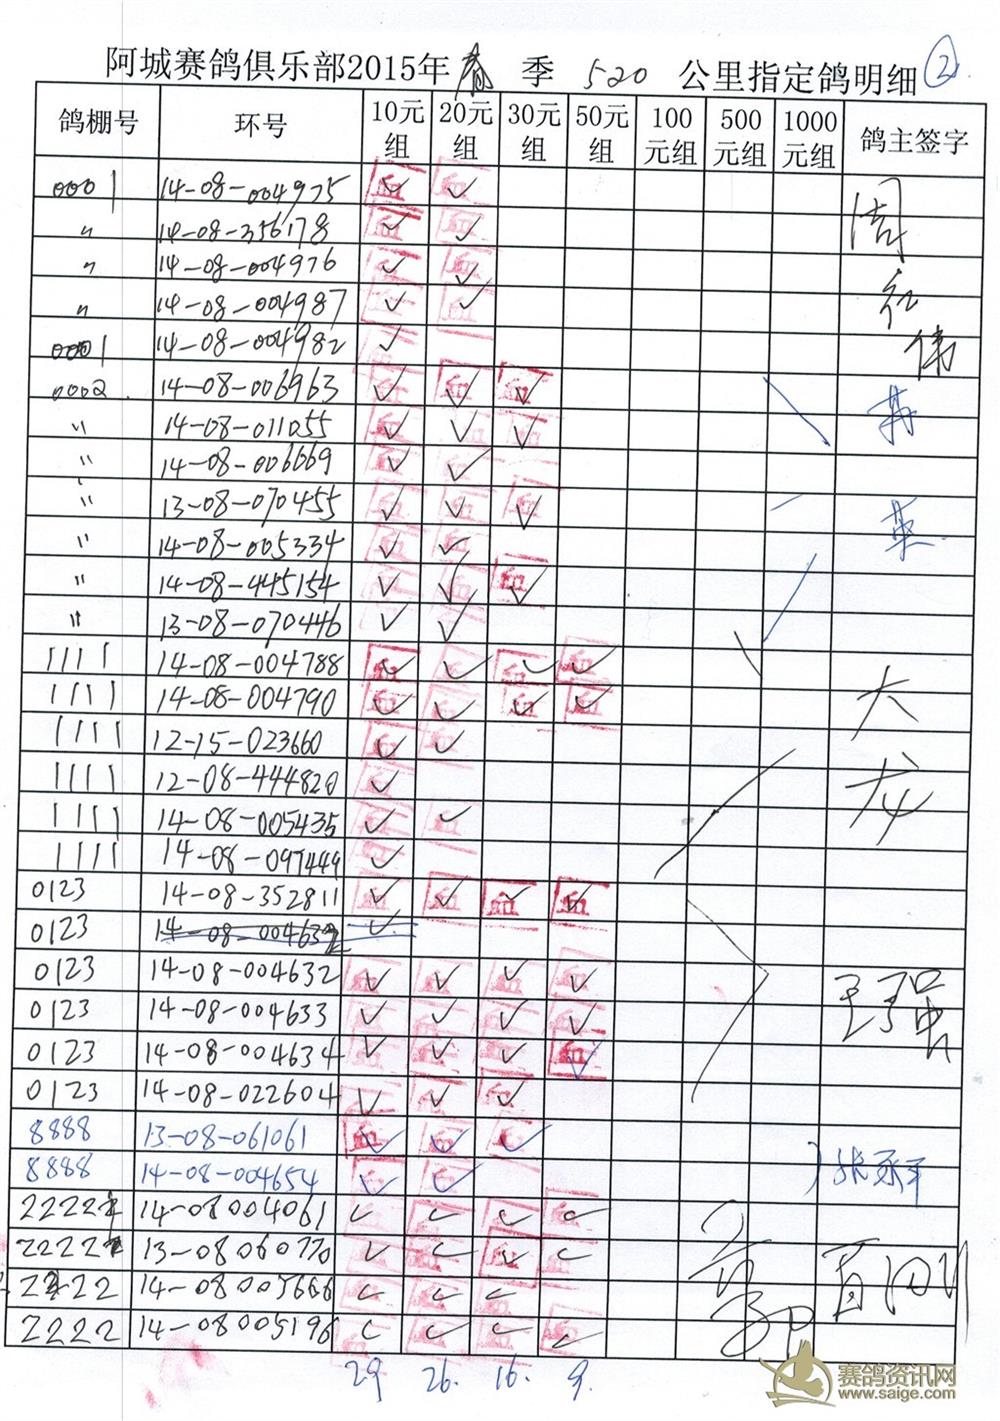 阿城赛鸽俱乐部2015年春季 520 公里指定鸽明细 ②
鸽棚号 环号 10元组 20元组 30元组 50元组 100元组 500元组 1000元组 鸽主签字
0001 14-08-004975 ✓ ✓
〃 14-08-356178 ✓ ✓
〃 14-08-004976 ✓ ✓
〃 14-08-004987 ✓ ✓
0001 14-08-004982 ✓
0002 14-08-006963 ✓ ✓ ✓
〃 14-08-011055 ✓ ✓ ✓
〃 14-08-006669 ✓ ✓
〃 13-08-070455 ✓ ✓ ✓
〃 14-08-005334 ✓ ✓
〃 14-08-445154 ✓ ✓ ✓
〃 13-08-070446 ✓ ✓
1111 14-08-004788 ✓ ✓ ✓ ✓
1111 14-08-004790 ✓ ✓ ✓ ✓
1111 12-15-023660 ✓ ✓
1111 12-08-444820 ✓
1111 14-08-005435 ✓ ✓
1111 14-08-097449 ✓
大龙
0123 14-08-352811 ✓ ✓ ✓ ✓
0123 14-08-004632 ✓
0123 14-08-004632 ✓ ✓ ✓ ✓
0123 14-08-004633 ✓ ✓ ✓ ✓
0123 14-08-004634 ✓ ✓ ✓ ✓
0123 14-08-022604 ✓ ✓ ✓
8888 13-08-061061 ✓ ✓ ✓
8888 14-08-004654 ✓ ✓
2222 14-08004061 ✓ ✓ ✓ ✓
2222 13-08060770 ✓ ✓ ✓ ✓
2222 14-08005666 ✓ ✓ ✓
2222 14-08005196 ✓ ✓ ✓ ✓
29 26. 16. 9.
赛鸽资讯网
www.saige.com